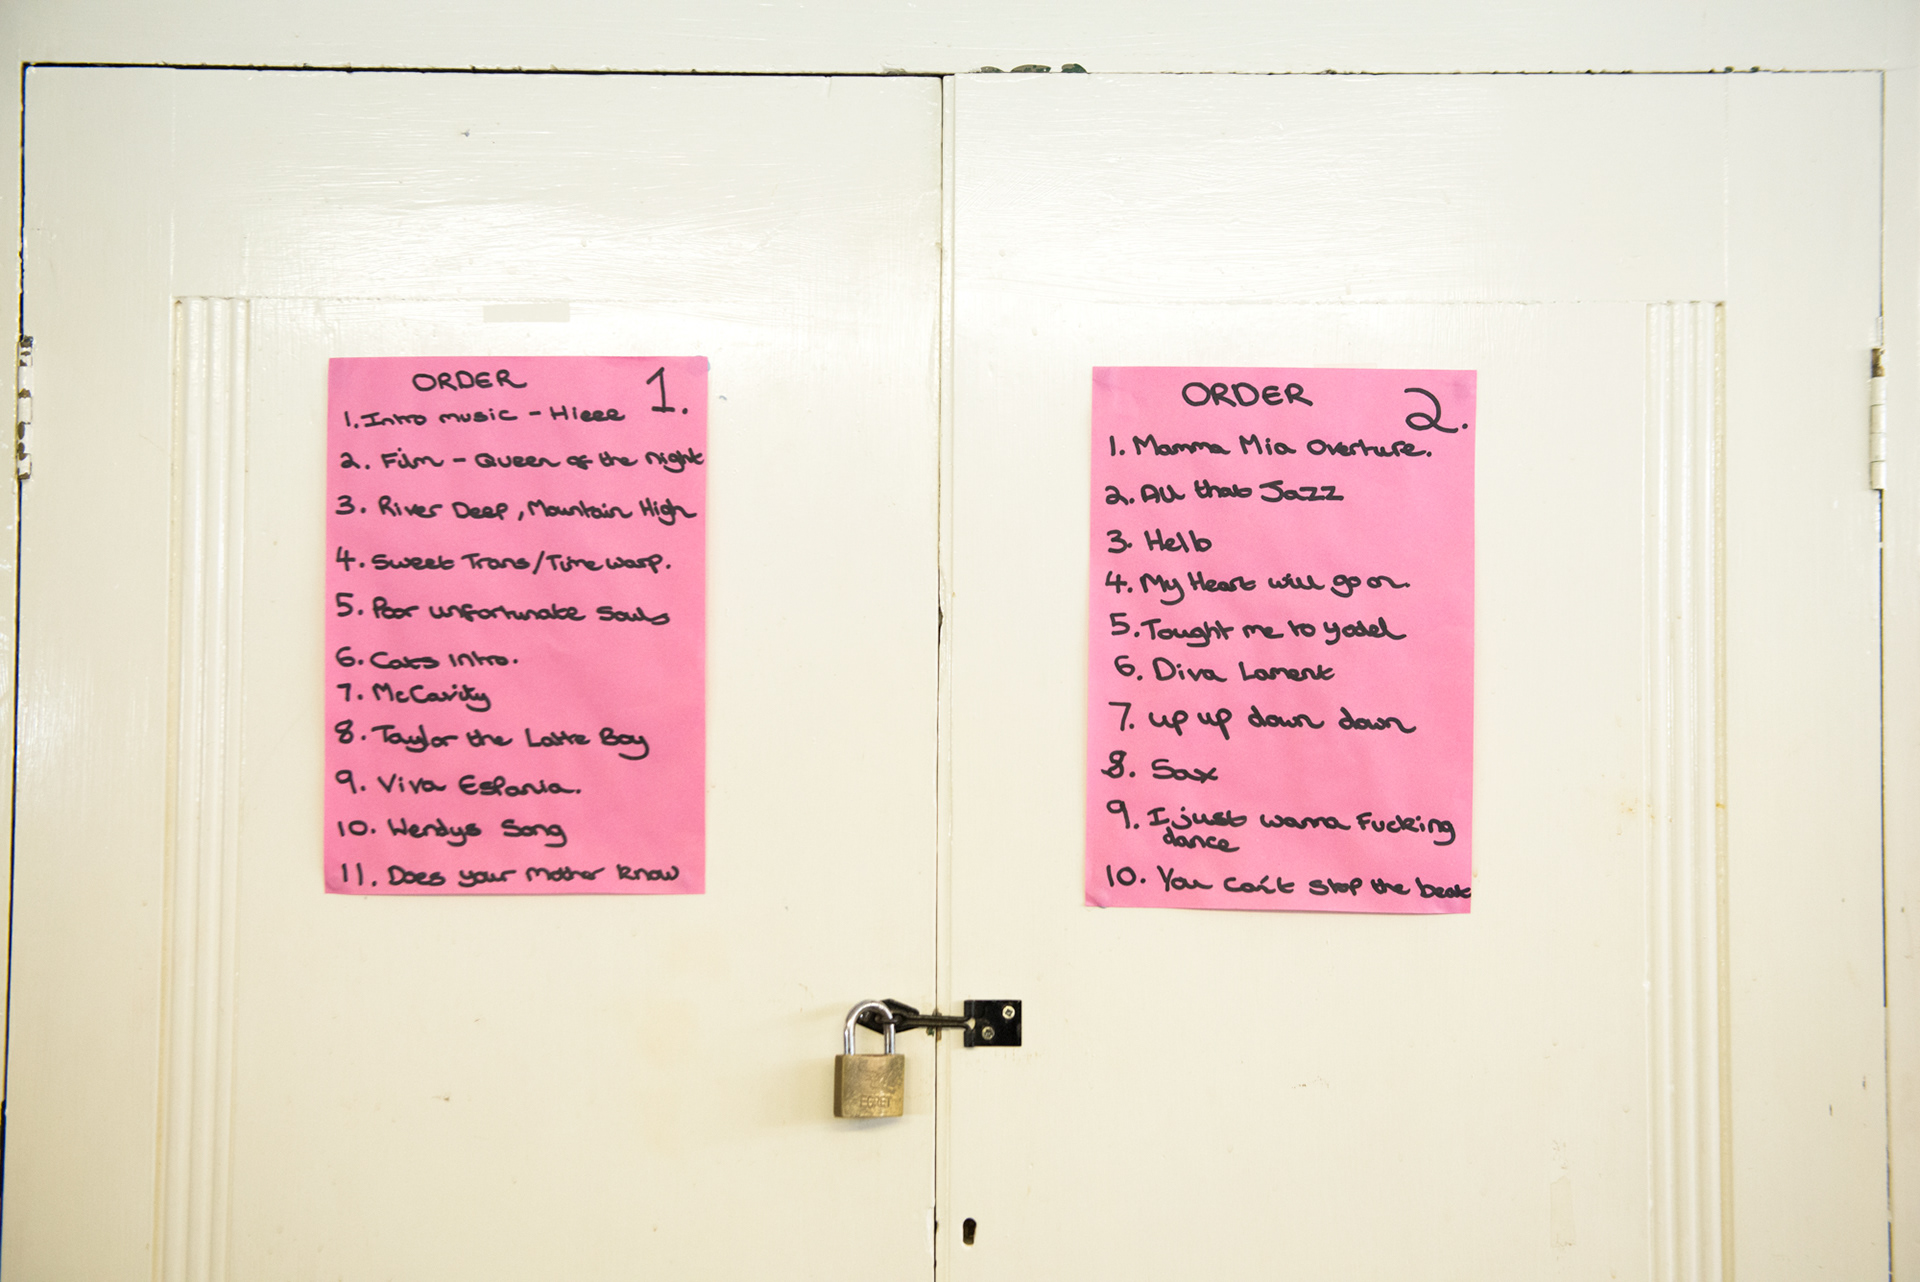 ORDER 1.
1. Intro music - Hieee
2. Film - Queen of the night
3. River Deep, Mountain High
4. Sweet Trans/Time warp.
5. Poor unfortunate souls
6. Cats Intro.
7. McCavity
8. Taylor the Latte Boy
9. Viva Espania.
10. Wendys Song
11. Does your mother know
ORDER 2.
1. Mamma Mia Overture.
2. All that Jazz
3. Hello
4. My Heart will go on.
5. Tought me to yodel
6. Diva Lament
7. up up down down
8. Sax
9. I just wanna Fucking
dance
10. You can't stop the beat
EGRET